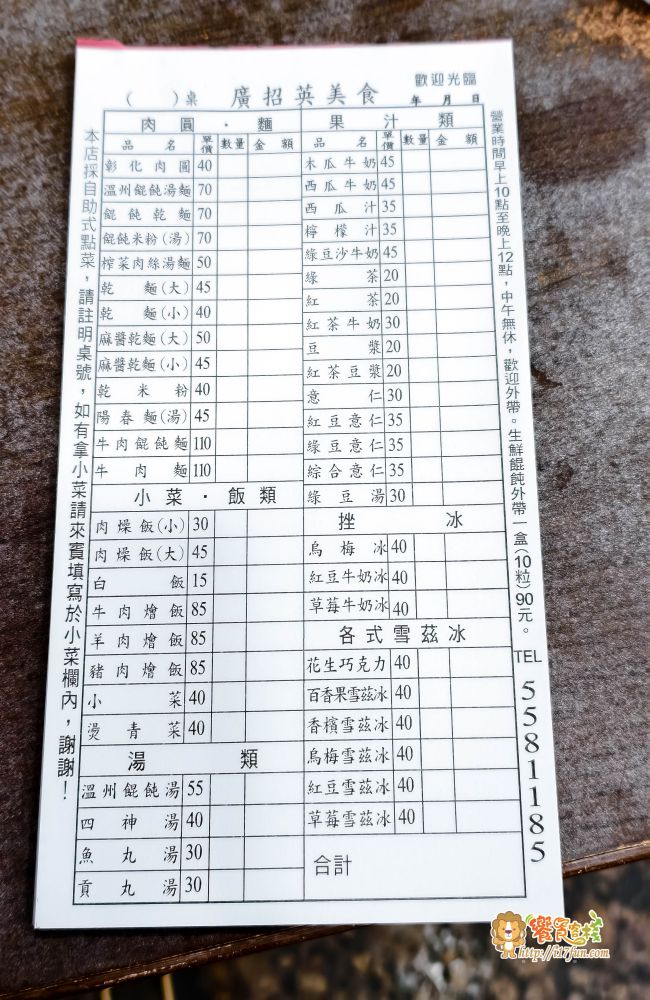 歡迎光臨
( )桌 廣招英美食 年 月 日
肉圓．麵
品名 單價 數量 金額
彰化肉圓 40
溫州餛飩湯麵 70
餛飩乾麵 70
餛飩米粉(湯) 70
榨菜肉絲湯麵 50
乾麵(大) 45
乾麵(小) 40
麻醬乾麵(大) 50
麻醬乾麵(小) 45
乾米粉 40
陽春麵(湯) 45
牛肉餛飩麵 110
牛肉麵 110
小菜．飯類
肉燥飯(小) 30
肉燥飯(大) 45
白飯 15
牛肉燴飯 85
羊肉燴飯 85
豬肉燴飯 85
小菜 40
燙青菜 40
湯類
溫州餛飩湯 55
四神湯 40
魚丸湯 30
貢丸湯 30
果汁類
品名 單價 數量 金額
木瓜牛奶 45
西瓜牛奶 45
西瓜汁 35
檸檬汁 35
綠豆沙牛奶 45
綠茶 20
紅茶 20
紅茶牛奶 30
豆漿 20
紅茶豆漿 20
意仁 30
紅豆意仁 35
綠豆意仁 35
綜合意仁 35
綠豆湯 30
挫冰
烏梅冰 40
紅豆牛奶冰 40
草莓牛奶冰 40
各式雪茲冰
花生巧克力 40
百香果雪茲冰 40
香檳雪茲冰 40
烏梅雪茲冰 40
紅豆雪茲冰 40
草莓雪茲冰 40
合計
本店採自助式點菜，請註明桌號，如有拿小菜請來賓填寫於小菜欄內，謝謝！
營業時間早上10點至晚上12點，中午無休，歡迎外帶。生鮮餛飩外帶一盒(10粒)90元。
TEL 5581185
饗食客棧
http://i17fun.com/